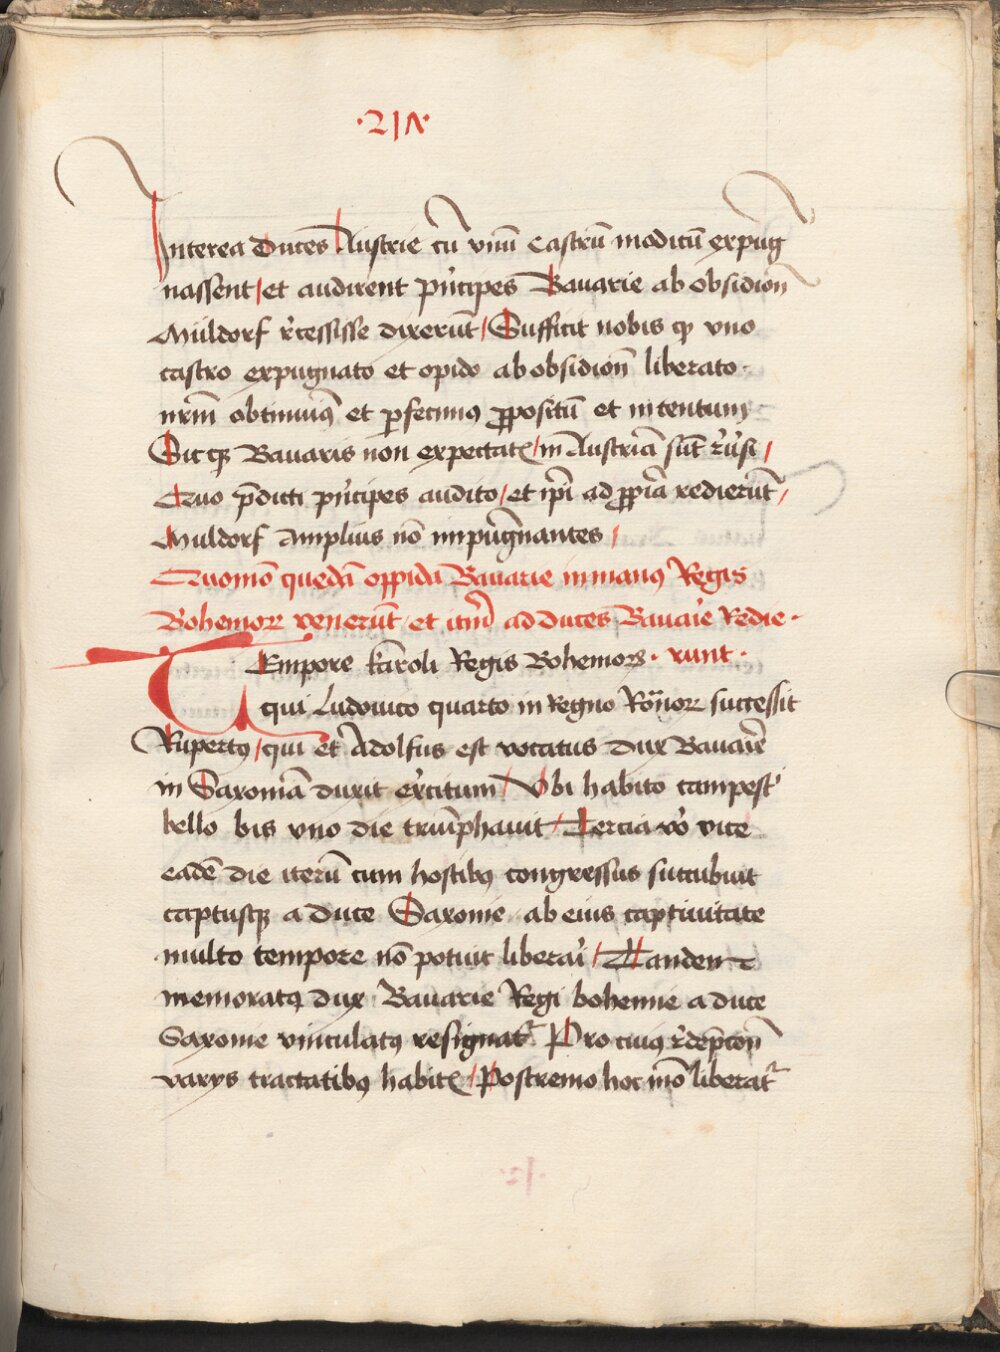 ·214·
Interea Duces Austrie cū vnū Castrū modicū expug
nassent / et audirent p̄ncipes Bavarie ab obsidion̄
Müldorf r̄cessisse dixerūt / Sufficit nobis qꝫ vno
castro expugnato et opido ab obsidion̄ liberato·
nr̄m obtinuimꝰ et perfecimꝰ ꝓpositū et intentum
Sicqꝫ Bavaris non expectatꝭ / in Austriā sūt r̄u̇si /
Quo p̄dicti p̄ncipes audito / et ip̄i ad ꝓpria redierūt /
Muldorf Amplius nō impūgnantes /
Quomō quedā oppida Bauarie in manꝰ Regis
Bohemoꝝ venerūt / et itm̄ ad duces Bauar̄ie Redie·
TEmpore kāroli Regis Bohemoꝝ· runt·
qui Ludouico quarto in Regno Rōnoꝝ successit
Rupertꝰ / qui et Adolfus est vocatus dux Bauar̄ie
in Saxoniā duxit ex̄citum / Vbi habito campest̓
bello bis vno die triūphauit / Tercia vo̊ vice
eadē die iterū cum hostibꝰ congressus succubuit
captusqꝫ a duce Saxonie ab eius captiuitate
multo tempore nō potuit liberar̄i / Tandem
memoratꝰ dux Bavarie Regi bohemie a duce
Saxonie vinculatꝰ resignat᷑ Pro cuiꝰ r̄dēpcon̄
varijs tractatibꝰ habitꝭ / Postremo hoc mō liberat᷑